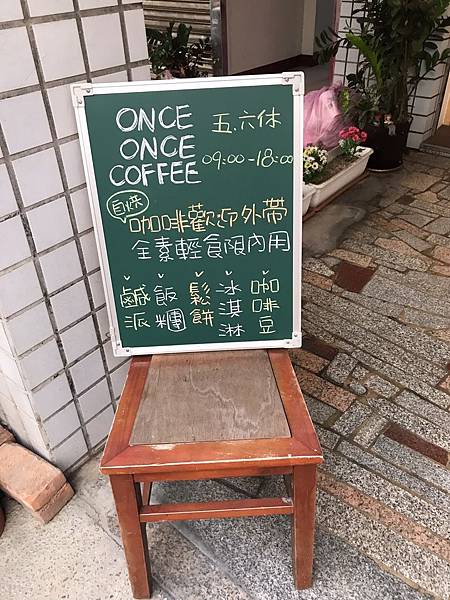 ONCE
ONCE
COFFEE
五.六休
09:00-18:00
自烘
咖啡歡迎外帶
全素輕食限內用
鹹派
飯糰
鬆餅
冰淇淋
咖啡豆